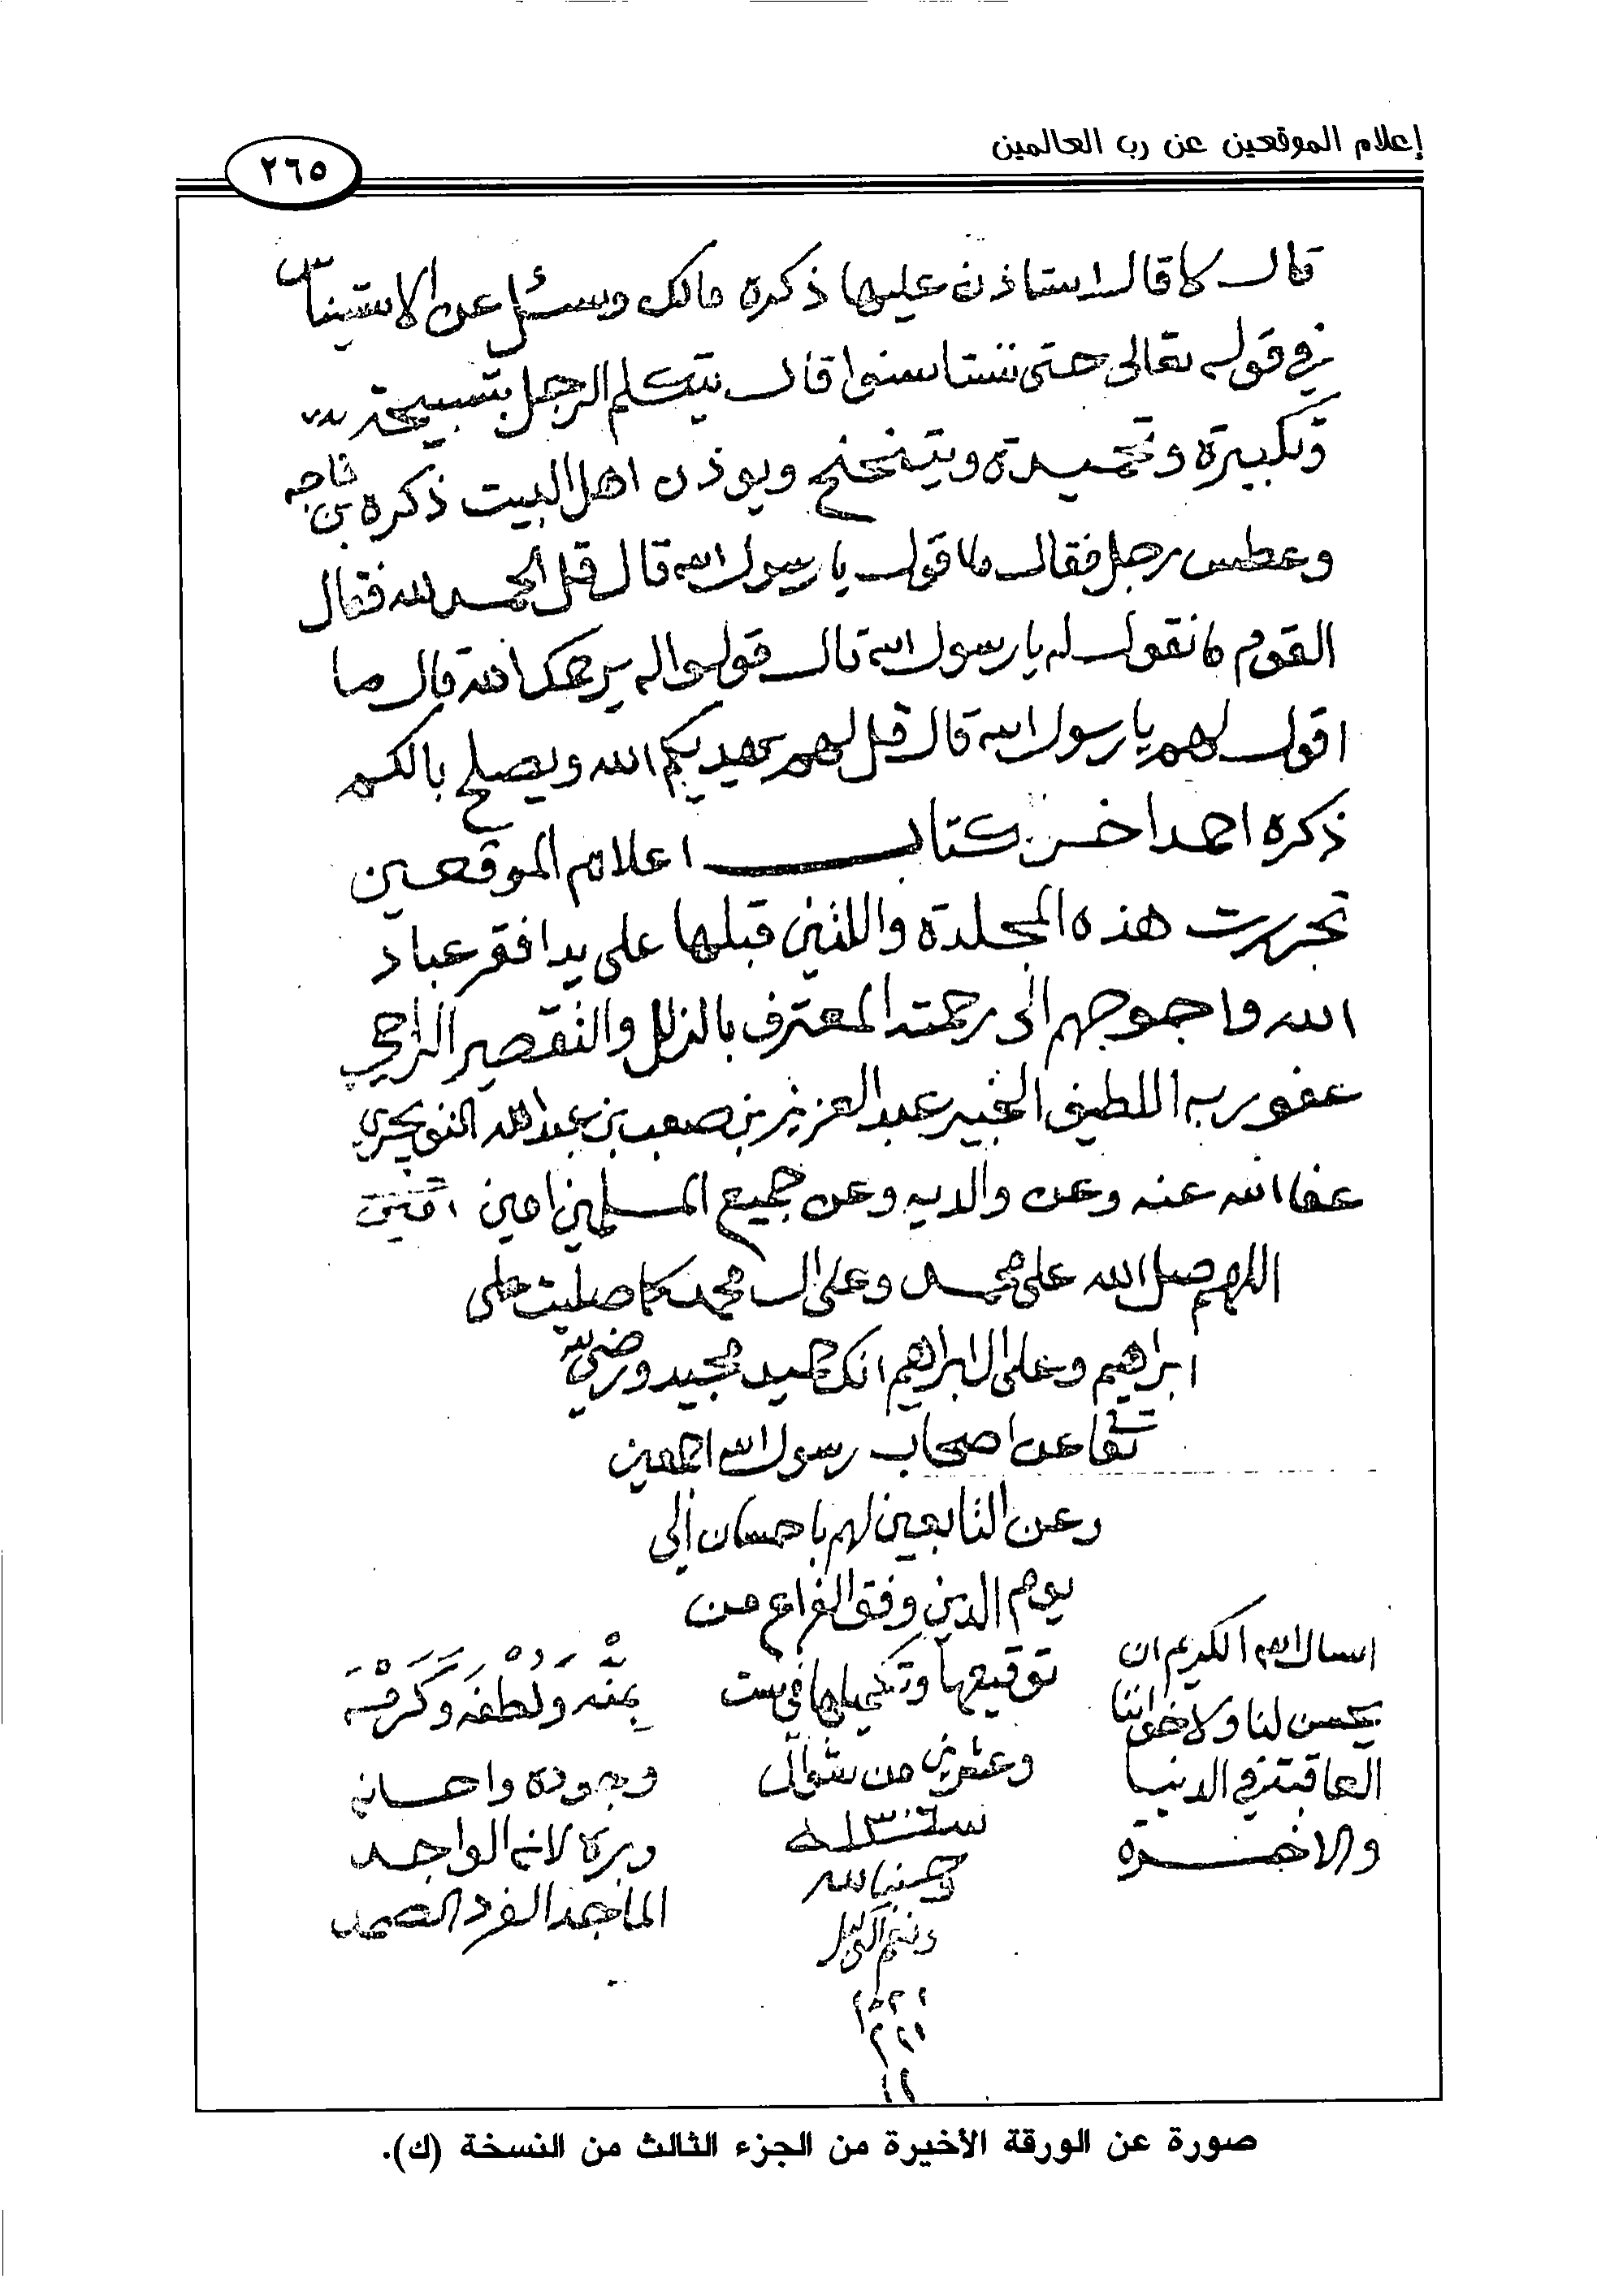 إعلام الموقعين عن رب العالمين
٢٦٥
قال لا قال استاذن عليها ذكره مالك وسئل عن الاستيناس
في قوله تعالى حتى تستانسوا قال يتكلم الرجل بتسبيحة
وتكبيرة وتحميدة ويتنحنح ويوذن اهل البيت ذكره بن ماجه
وعطس رجل فقال ما اقول يا رسول الله قال قل الحمد لله فقال
القوم ما نقول له يا رسول الله قال قولوا له يرحمك الله قال ما
اقول لهم يا رسول الله قال قل لهم يهديكم الله ويصلح بالكم
ذكره احمد اخر كتاب اعلام الموقعين
تحررت هذه المجلدة واللتين قبلها على يد افقر عباد
الله واحوجهم الى رحمته المعترف بالزلل والتقصير الراجي
عفو ربه اللطيف الخبير عبد العزيز بن صعب بن عبد الله التويجري
عفا الله عنه وعن والديه وعن جميع المسلمين امين امين
اللهم صل الله على محمد وعلى ال محمد كما صليت على
ابراهيم وعلى ال ابراهيم انك حميد مجيد ورضي الله
تعا عن اصحاب رسول الله اجمعين
وعن التابعين لهم باحسان الى
يوم الدين وفق الفراغ من
توقيعها وتكميلها في ست
وعشرين من شوال
سنة ١٣٠٦
وحسبنا الله
ونعم الوكيل
اسال الله الكريم ان
يحسن لنا ولاخواننا
العاقبة في الدنيا
والاخرة
بمنه ولطفه وكرمه
وجوده واحسانه
وبره لانه الواجد
الماجد الفرد الصمد
صورة عن الورقة الأخيرة من الجزء الثالث من النسخة (ك).